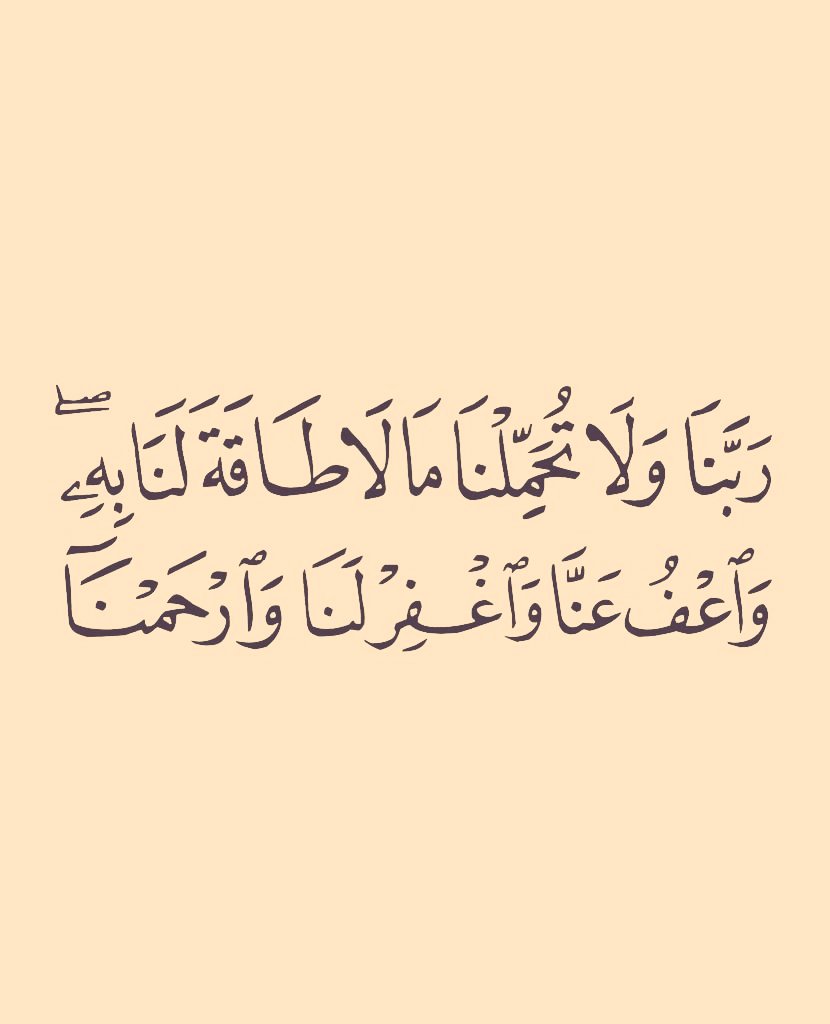 رَبَّنَا وَلَا تُحَمِّلْنَا مَا لَا طَاقَةَ لَنَا بِهِۦۖ
وَٱعْفُ عَنَّا وَٱغْفِرْ لَنَا وَٱرْحَمْنَآ